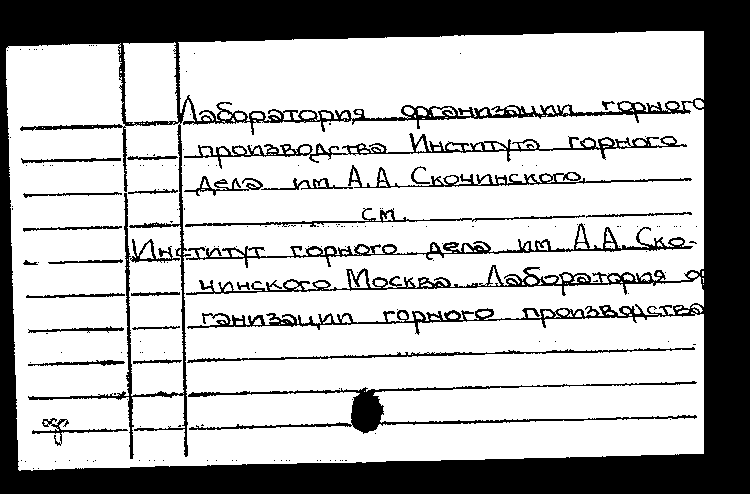 Лаборатория организации горного
производства Института горного
дела им. А.А. Скочинского.
см.
Институт горного дела им. А.А. Ско-
чинского. Москва. Лаборатория ор
ганизации горного производства